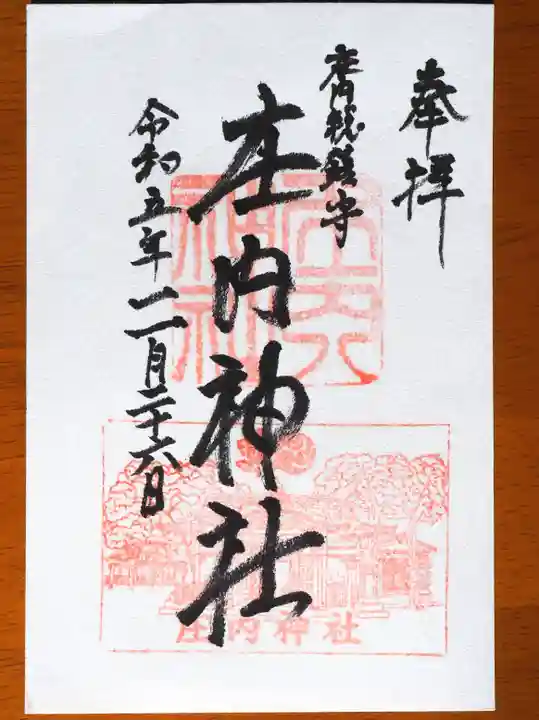 奉拝
庄内鎮守
庄内神社
令和五年二月二十六日
庄内神社
庄内神社